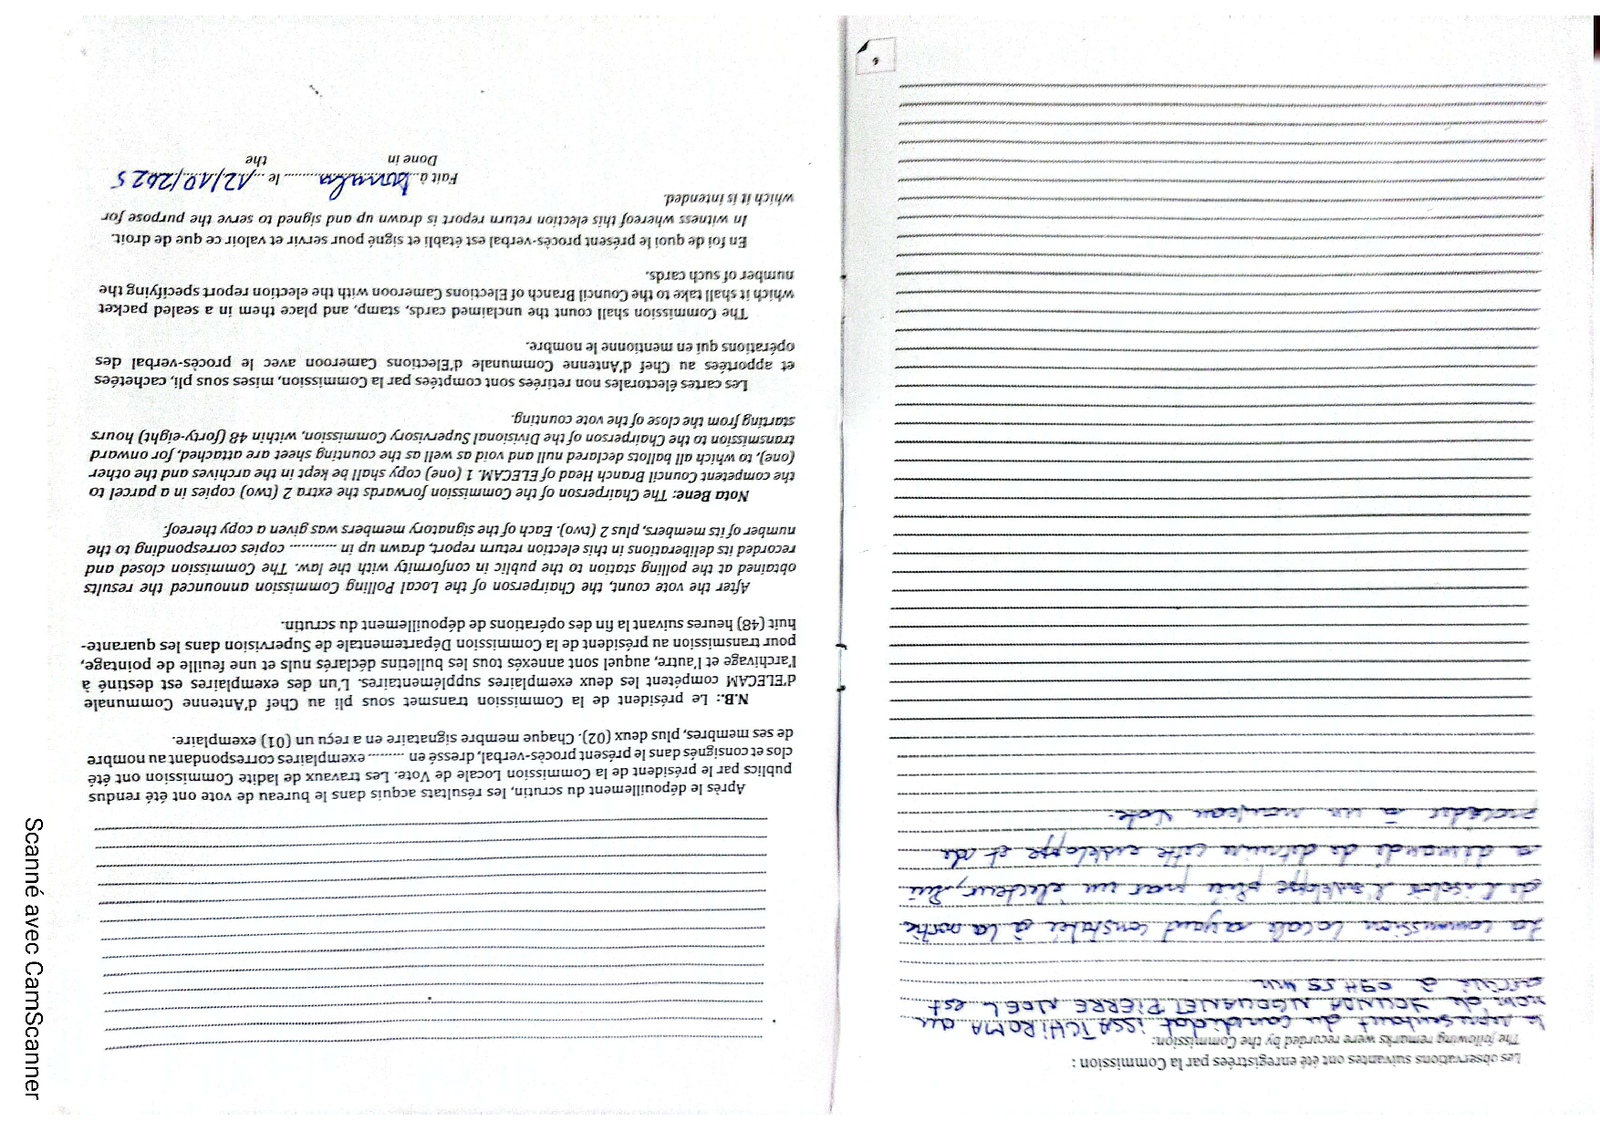 Les observations suivantes ont été enregistrées par la Commission :
The following remarks were recorded by the Commission:
le représentant du candidat ISSA TCHIROMA au
nom de NGOUANET PIERRE NOEL est
arrivé à 09H55 mn
La commission locale ayant constatée à la sortie
de l'isoloir l'enveloppe pliée par un électeur, lui
a demandé de détruire cette enveloppe et de
procéder à un nouveau vote.
Après le dépouillement du scrutin, les résultats acquis dans le bureau de vote ont été rendus
publics par le président de la Commission Locale de Vote. Les travaux de ladite Commission ont été
clos et consignés dans le présent procès-verbal, dressé en ......... exemplaires correspondant au nombre
de ses membres, plus deux (02). Chaque membre signataire en a reçu un (01) exemplaire.
N.B.: Le président de la Commission transmet sous pli au Chef d'Antenne Communale
d'ELECAM compétent les deux exemplaires supplémentaires. L'un des exemplaires est destiné à
l'archivage et l'autre, auquel sont annexés tous les bulletins déclarés nuls et une feuille de pointage,
pour transmission au président de la Commission Départementale de Supervision dans les quarante-
huit (48) heures suivant la fin des opérations de dépouillement du scrutin.
After the vote count, the Chairperson of the Local Polling Commission announced the results
obtained at the polling station to the public in conformity with the law. The Commission closed and
recorded its deliberations in this election return report, drawn up in ............ copies corresponding to the
number of its members, plus 2 (two). Each of the signatory members was given a copy thereof.
Nota Bene: The Chairperson of the Commission forwards the extra 2 (two) copies in a parcel to
the competent Council Branch Head of ELECAM. 1 (one) copy shall be kept in the archives and the other
(one), to which all ballots declared null and void as well as the counting sheet are attached, for onward
transmission to the Chairperson of the Divisional Supervisory Commission, within 48 (forty-eight) hours
starting from the close of the vote counting.
Les cartes électorales non retirées sont comptées par la Commission, mises sous pli, cachetées
et apportées au Chef d'Antenne Communale d'Elections Cameroon avec le procès-verbal des
opérations qui en mentionne le nombre.
The Commission shall count the unclaimed cards, stamp, and place them in a sealed packet
which it shall take to the Council Branch of Elections Cameroon with the election report specifying the
number of such cards.
En foi de quoi le présent procès-verbal est établi et signé pour servir et valoir ce que de droit.
In witness whereof this election return report is drawn up and signed to serve the purpose for
which it is intended.
Fait à Douala le 12/10/2025
Done in the
Scanné avec CamScanner